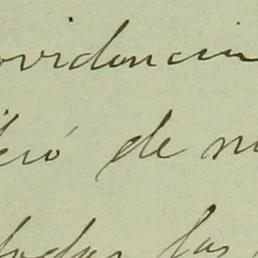 ovidencia
ció de n
todas las